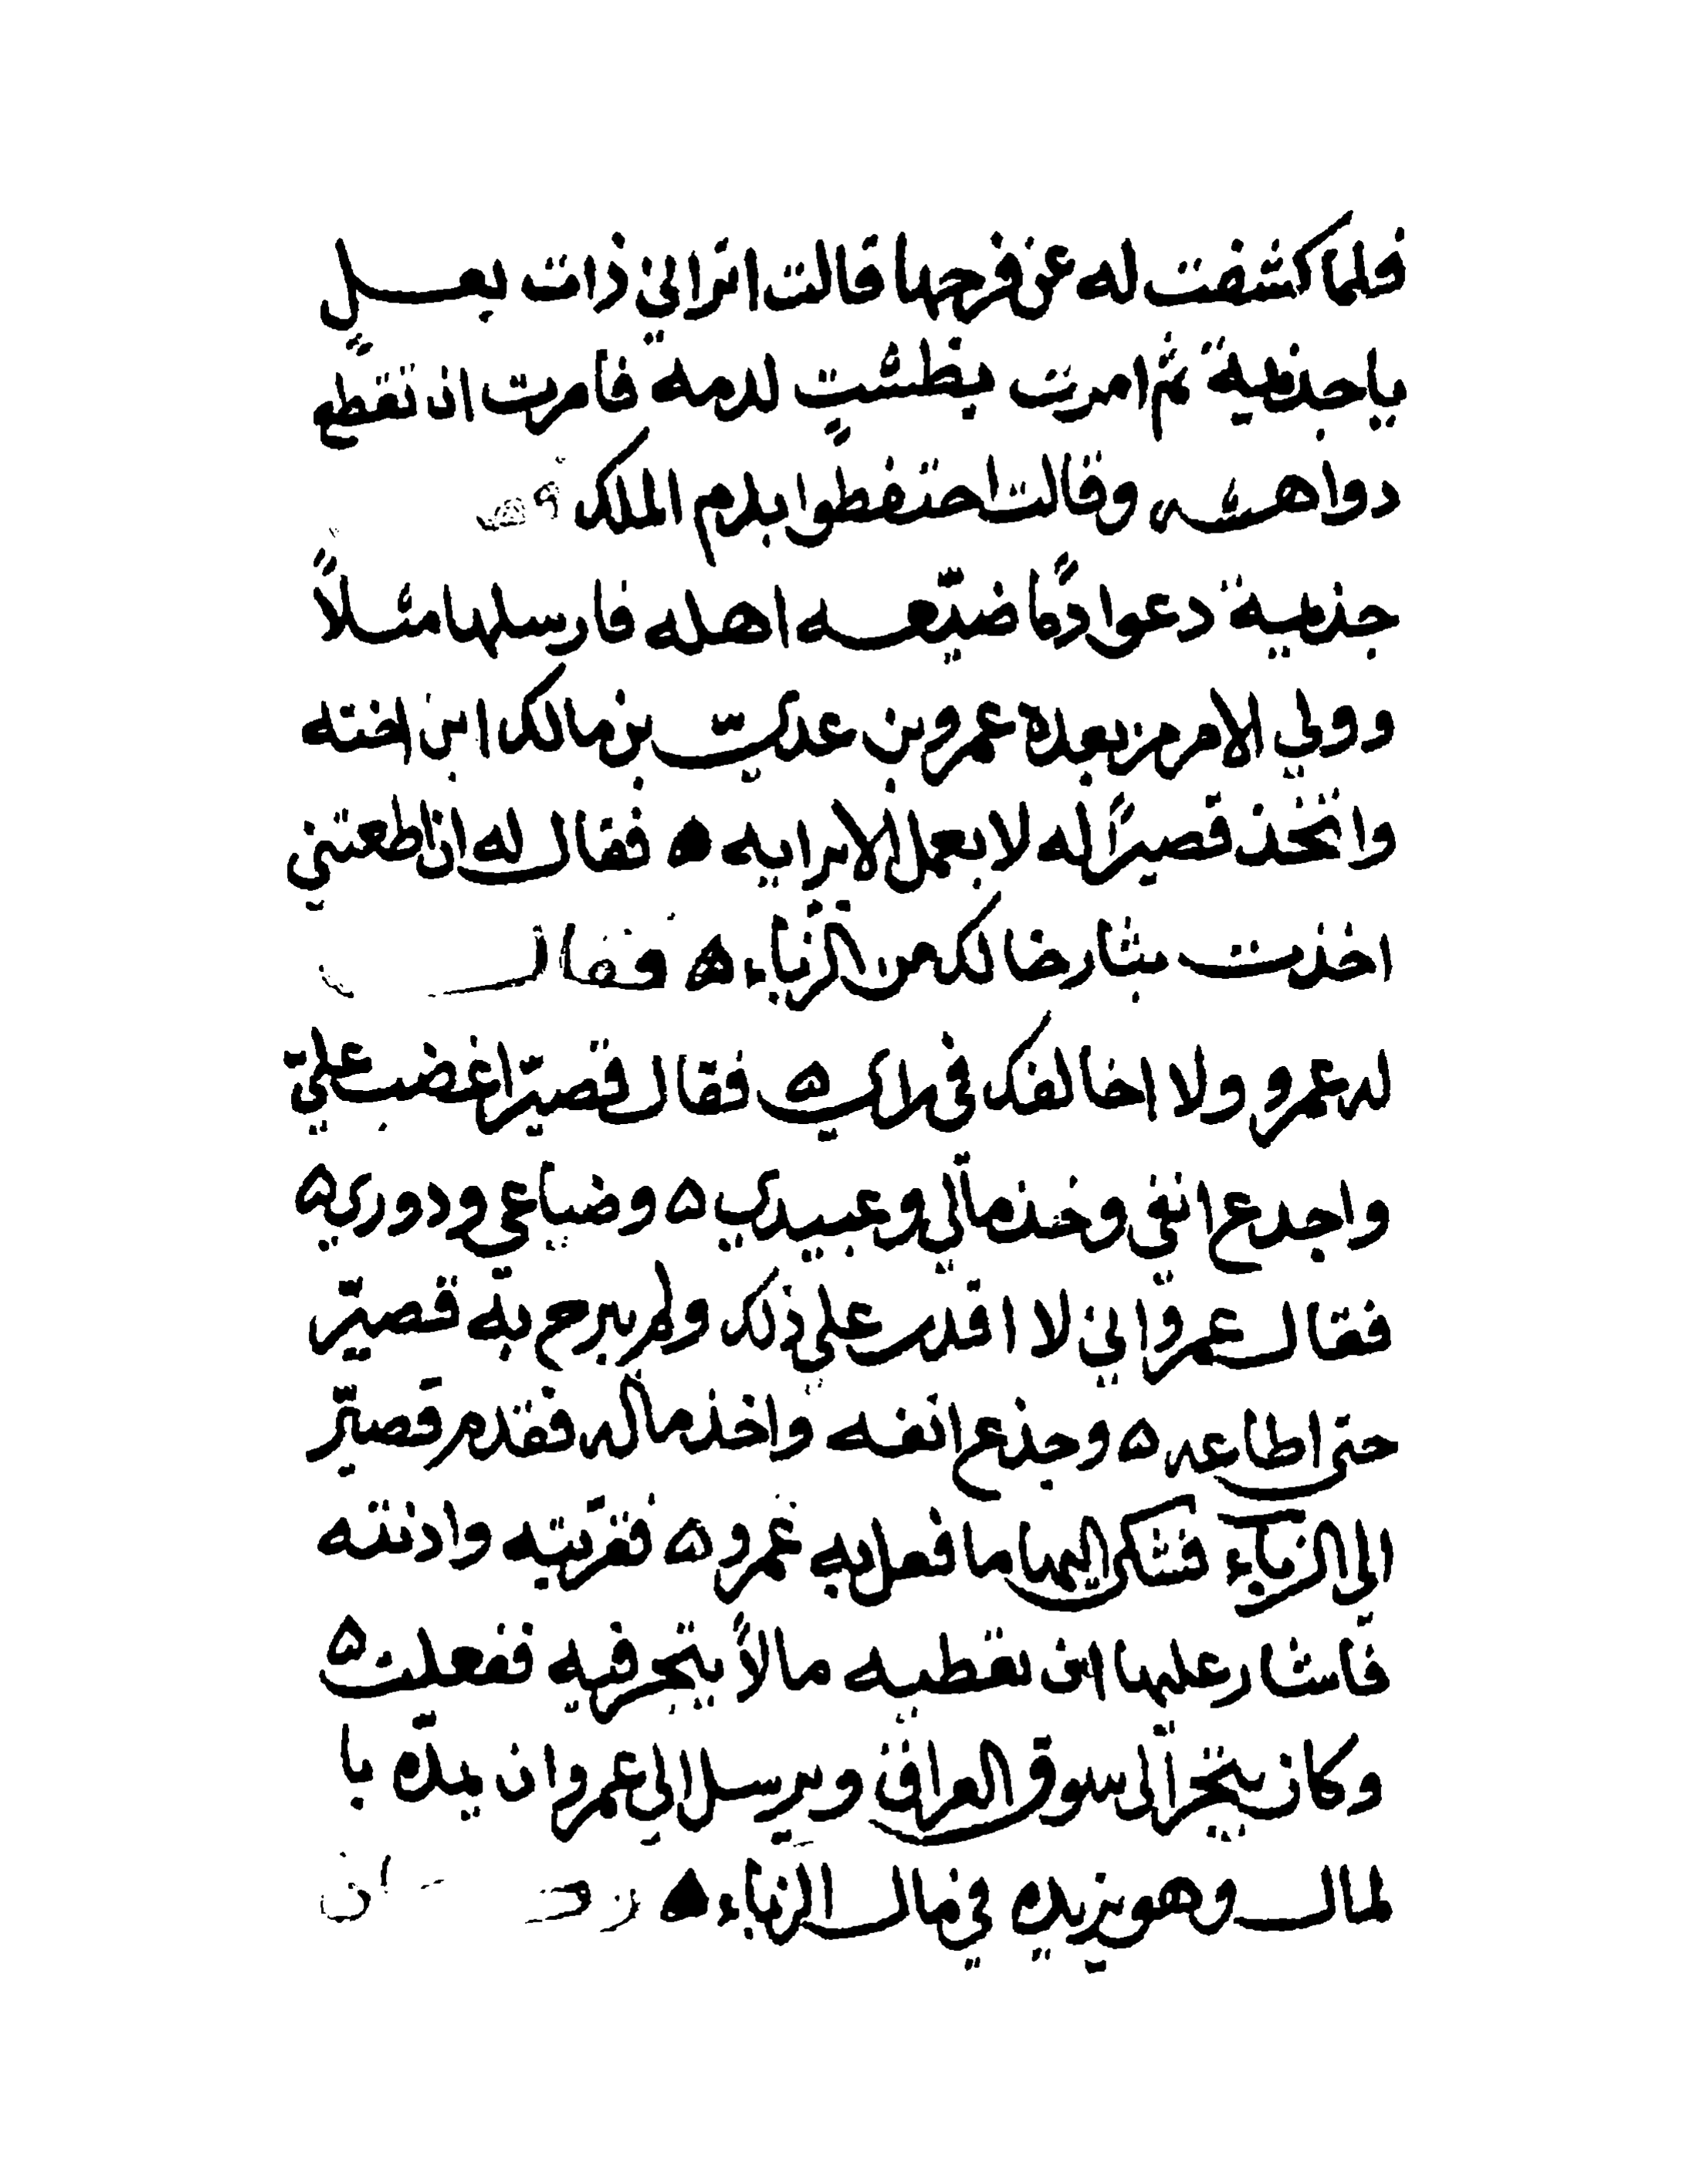 فلما كشفت له عن فرجها قالت اتراني ذات بعل
يا جذيمة ثم امرت بطشتٍ لدمه فامرت ان تقطع
دواهشه وقالت احتفطوا بدم الملك
جذيمة دعوا دمًا ضيّعه اهله فارسلها مثلاً
وولي الامر من بعده عمرو بن عدي بن مالك ابن اخته
واتخذ قصيرًا له لا يعمل الا برايه ه فقال له ان اطعتني
اخذت بثار خالك من الزباء ه فقال
له عمرو ولا اخالفك في راي ه فقال قصير اغضب علي
واجدع انفي وخذ مالي وعبيدي ه وضياعي ودوري ه
فقال عمرو اني لا اقدر على ذلك ولم يبرح به قصير
حتى اطاعه ه وجذع انفه واخذ ماله فقدم قصير
الى الزباء فشكى اليها ما فعل به عمرو ه فقربته وادنته
فاشار عليها ان تعطيه مالاً يتجر فيه ففعلت ه
وكان يتجر الى سوق العراق ويرسل الى عمرو ان يمده با
لمال وهو يزيده في مال الزباء ه